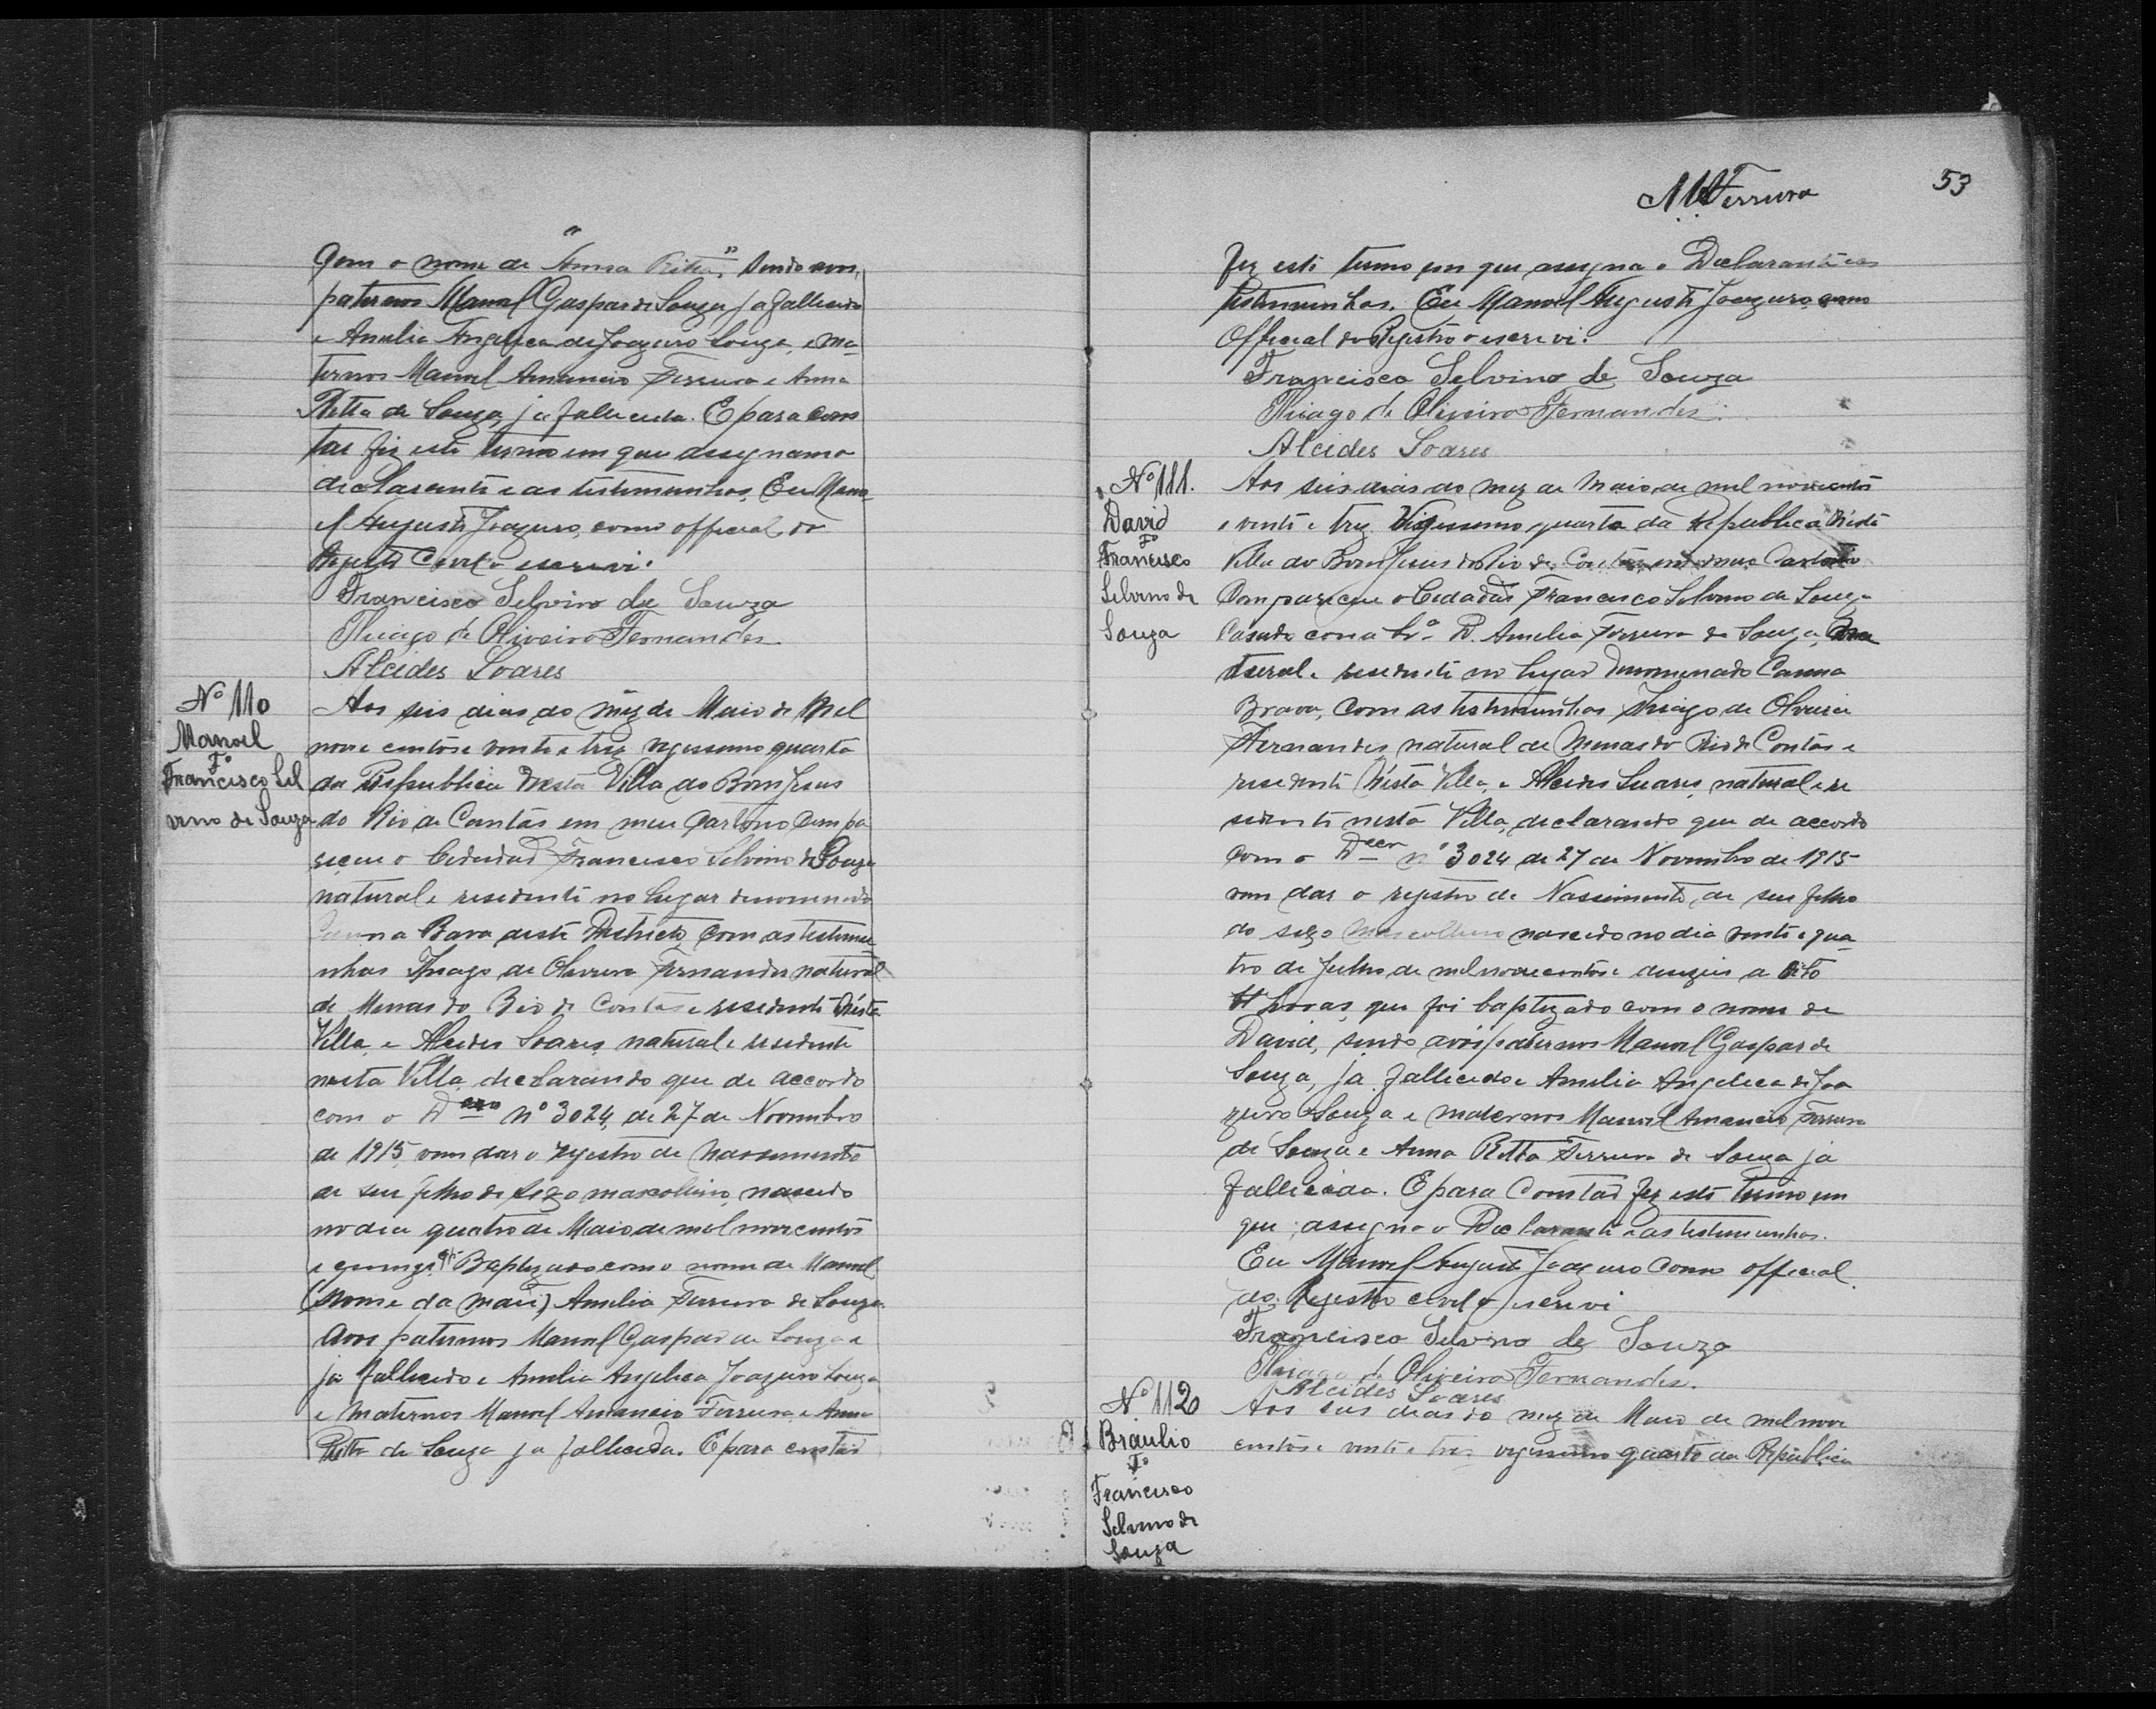 com o nome de "Anna Ritta", sendo avos
paternos Manoel Gaspar de Souza ja fallecido
e Amelia Angelica de Joazeiro Souza, e ma-
ternos Manoel Amancio Ferreira e Anna
Ritta de Souza, ja fallecida. E para cons
tar fiz este termo em que assignam o
declarante e as testimunhas. Eu Mano
el Augusto Joazeiro, como official do
Registo Civil o escrevi.
Francisco Selvino de Souza
Thiago de Oliveira Fernandes
Alcides Soares
Nº 110
Manoel
Fº
Francisco Sel
vino de Souza
Aos seis dias do mez de Maio de Mil
nove centos e vente e trez vegessemo quarto
da Republica Nesta Villa do Bom Jesus
do Rio de Contas em meu Cartorio Compa
receu o Cidadaõ Francisco Selvino de Souza
natural e residente no lugar denomenado
Canna Brava deste Districto com as testemu
nhas Thiago de Oliveira Fernandes natural
de Minas do Rio de Contas e residente Nésta
Villa, e Alcides Soares natural e residente
nesta Villa, declarando que de accordo
com o Decreto nº 3024, de 27 de Novembro
de 1915, vem dar o registro de Nascemento
de seu filho do sexo mascollino, nascido
no dia quatro de Maio de mil novecentos
e quinze, Baptizado com o nome de Manoel
(Nome da mãi) Amelia Ferreira de Souza
Avos paternos Manoel Gaspar de Souza e
já fallecido e Amelia Angelica Joazeiro Souza
e Maternos Manoel Amancio Ferreira, e Anna
Ritta de Souza ja fallecida. E para constar
M A Ferreira
53
fiz este termo em que assigna o Declarante e as
testimunhas. Eu Manoel Augusto Joazeiro, como
Official do Registro o escrevi.
Francisco Selvino de Souza
Thiago de Oliveira Fernandes
Alcides Soares
Nº 111.
David
Fº
Francisco
Selvino de
Souza
Aos seis dias do mez de Maio de mil novecentos
e vente e trez. Vigessemo quarto da Republica Nésta
Villa do Bom Jesus do Rio de Contas, em meu Cartorio
Compareceu o Cidadaõ Francisco Selvino de Souza
Casado com a Srª D. Amelia Ferreira de Souza,
natural e residente no lugar denomenado Canna
Brava, com as testimunhas Thiago de Oliveira
Fernandes natural de Minas do Rio de Contas e
residente Nésta Villa, e Alcides Soares, natural e re
sidente nesta Villa, declarando que de accordo
com o Decr nº 3024 de 27 de Novembro de 1915
vem dar o registro de Nascimento de seu filho
do sexo Mascollino nascido no dia vente e qua
tro de Julho de mil novecentos e dezseis a oito
horas, que foi baptizado com o nome de
David, sendo avós paternos Manoel Gaspar de
Souza, já fallecido e Amelia Angelica de Joa
zeiro Souza e maternos Manoel Amancio Ferreira
de Souza e Anna Ritta Ferreira de Souza já
fallecida. E para Constar fiz este termo em
que assigna o Declarante e as testimunhas.
Eu Manoel Augusto Joazeiro como official
do Registro civil o escrevi
Francisco Selvino de Souza
Thiago de Oliveira Fernandes.
Alcides Soares
Nº 112
Braulio
Fº
Francisco
Selvino de
Souza
Aos seis dias do mez de Maio de mil nove
centos e vente e trez vegessimo quarto da Republica